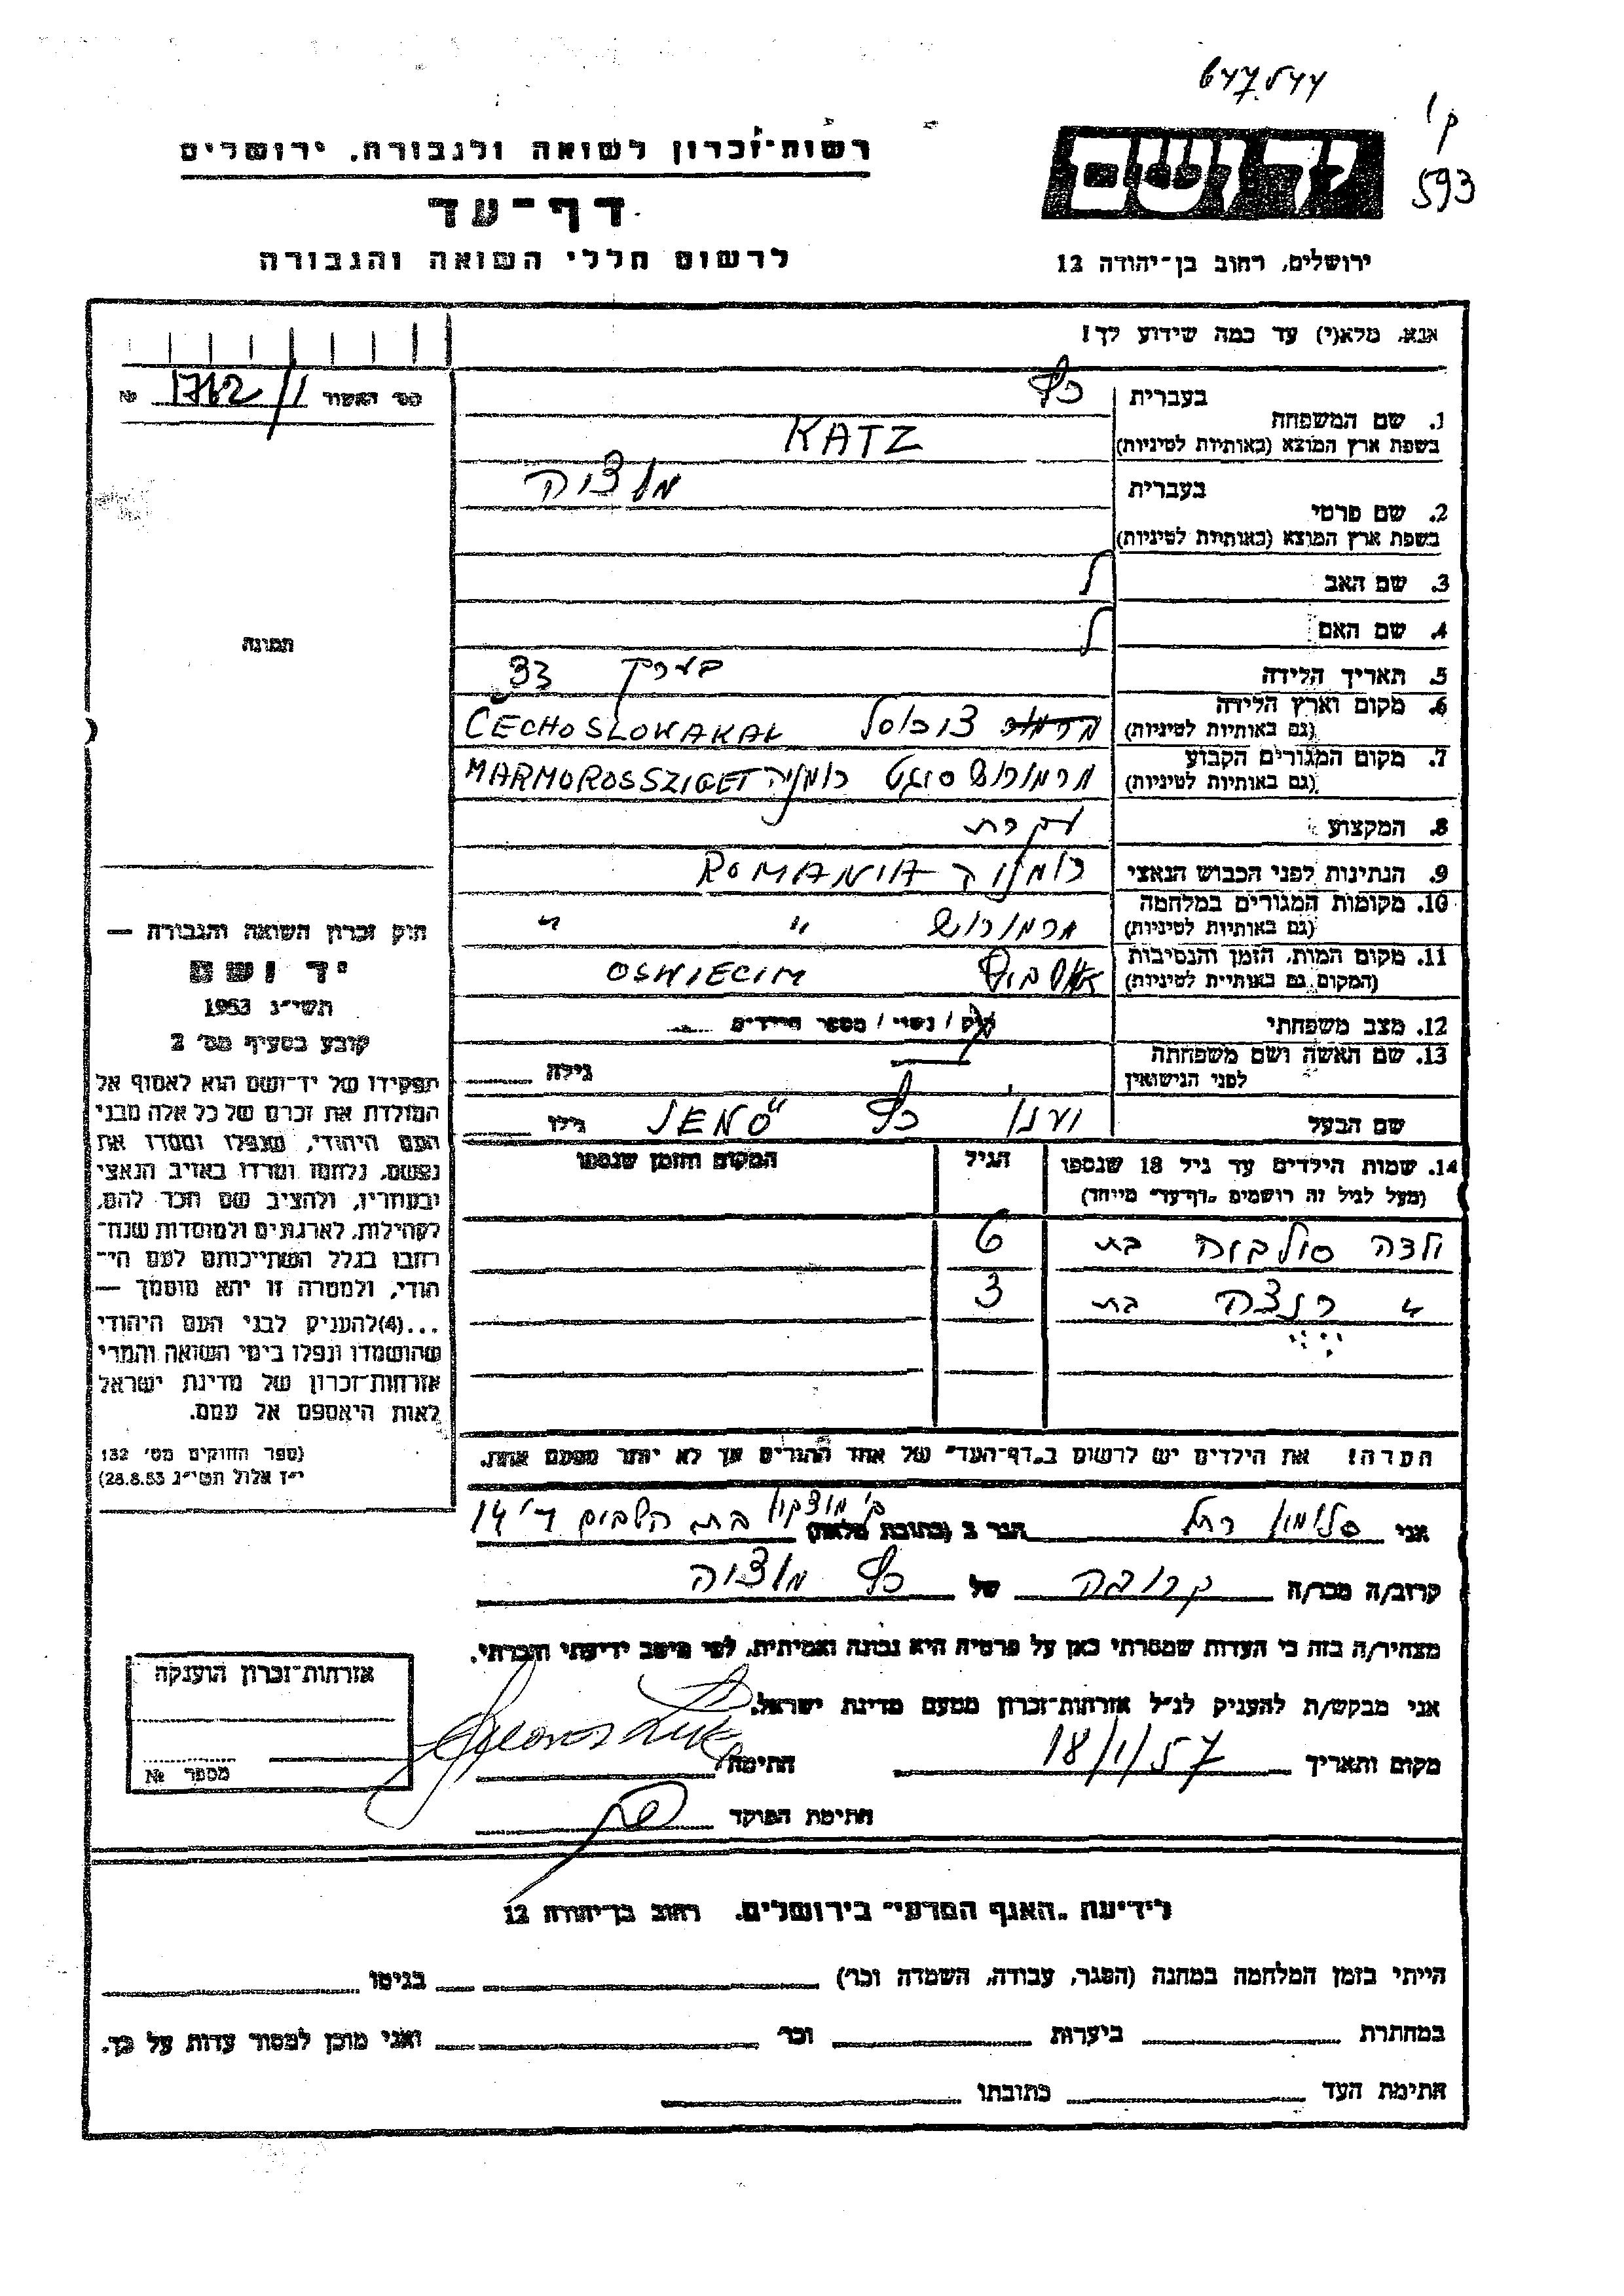 647.544
ק'
593
רשות-זכרון לשואה ולגבורה, ירושלים
דף-עד
לרשום חללי השואה והגבורה
יד ושם
ירושלים, רחוב בן-יהודה 12
אנא, מלא(י) עד כמה שידוע לך!
מס' האשור 1762/1 №
בעברית כץ
1. שם המשפחה
בשפת ארץ המוצא (באותיות לטיניות) KATZ
בעברית
2. שם פרטי
בשפת ארץ המוצא (באותיות לטיניות)
3. שם האב
4. שם האם
תמונה
5. תאריך הלידה בערך 33
6. מקום וארץ הלידה
(גם באותיות לטיניות) צ'וכוסל ČECHOSLOWAKAI
7. מקום המגורים הקבוע
(גם באותיות לטיניות) מרמורוש סיגט רומניה MARMOROSSZIGET
8. המקצוע עקרת
9. הנתינות לפני הכבוש הנאצי רומניה ROMANIA
10. מקומות המגורים במלחמה
(גם באותיות לטיניות) מרמורוש " "
11. מקום המות, הזמן והנסיבות
(המקום גם באותיות לטיניות) אושביץ OSWIECIM
12. מצב משפחתי רווק / נשוי / מספר הילדים
13. שם האשה ושם משפחתה
לפני הנישואין גילה
שם הבעל כץ JENŐ גילו
14. שמות הילדים עד גיל 18 שנספו הגיל המקום והזמן שנספו
(מעל לגיל זה רושמים "דף-עד" מיוחד)
ילדה סולביה בת 6
" בת 3
הערה! את הילדים יש לרשום ב"דף-העד" של אחד ההורים אך לא יותר מפעם אחת.
חוק זכרון השואה והגבורה —
יד ושם
תשי"ג 1953
קובע בסעיף מס' 2
תפקידו של יד-ושם הוא לאסוף אל
המולדת את זכרם של כל אלה מבני
העם היהודי, שנפלו ומסרו את
נפשם, נלחמו ומרדו באויב הנאצי
ובעוזריו, ולהציב שם וזכר להם,
לקהילות, לארגונים ולמוסדות שנח-
רבו בגלל השתייכותם לעם הי-
הודי, ולמטרה זו יהא מוסמך —
...(4)להעניק לבני העם היהודי
שהושמדו ונפלו בימי השואה והמרי
אזרחות-זכרון של מדינת ישראל
לאות היאספם אל עמם.
(ספר החוקים מס' 132
י"ז אלול תשי"ג 28.8.53)
אני סלומון רחל הגר ב (כתובת מלאה) ק' מוצקין 14
קרוב/ה מכר/ה קרובה של כץ
מצהיר/ה בזה כי העדות שמסרתי כאן על פרטיה היא נכונה ואמיתית, לפי מיטב ידיעתי והכרתי.
אני מבקש/ת להעניק לנ"ל אזרחות-זכרון מטעם מדינת ישראל.
מקום ותאריך 18/1/57 חתימה
חתימת הפוקד
אזרחות-זכרון הוענקה
מספר №
לידיעת "האגף המדעי" בירושלים, רחוב בן-יהודה 12
הייתי בזמן המלחמה במחנה (הסגר, עבודה, השמדה וכו') בגיטו
במחתרת ביערות וכו' ואני מוכן למסור עדות על כך.
חתימת העד כתובתו